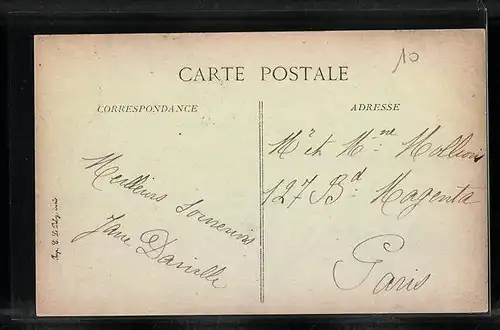 10
CARTE POSTALE
CORRESPONDANCE
ADRESSE
Meilleurs Souvenirs
Jane Danielle
Mr et Mme
127 Bd Magenta
Paris